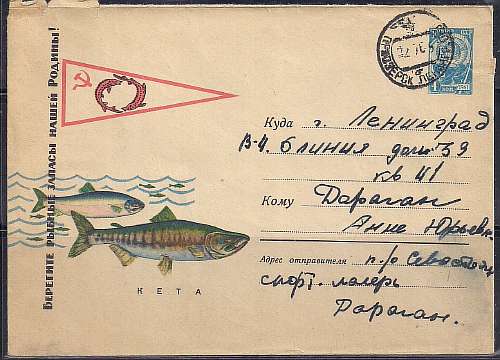 Берегите рыбные запасы нашей Родины!
ПРИОЗЕРСК
Куда г. Ленинград
В-4. 6 линия дом 39
кв 41
Кому Дараган
Анне Юрьевне
Адрес отправителя п/о
спорт. лагерь
Дараган.
КЕТА